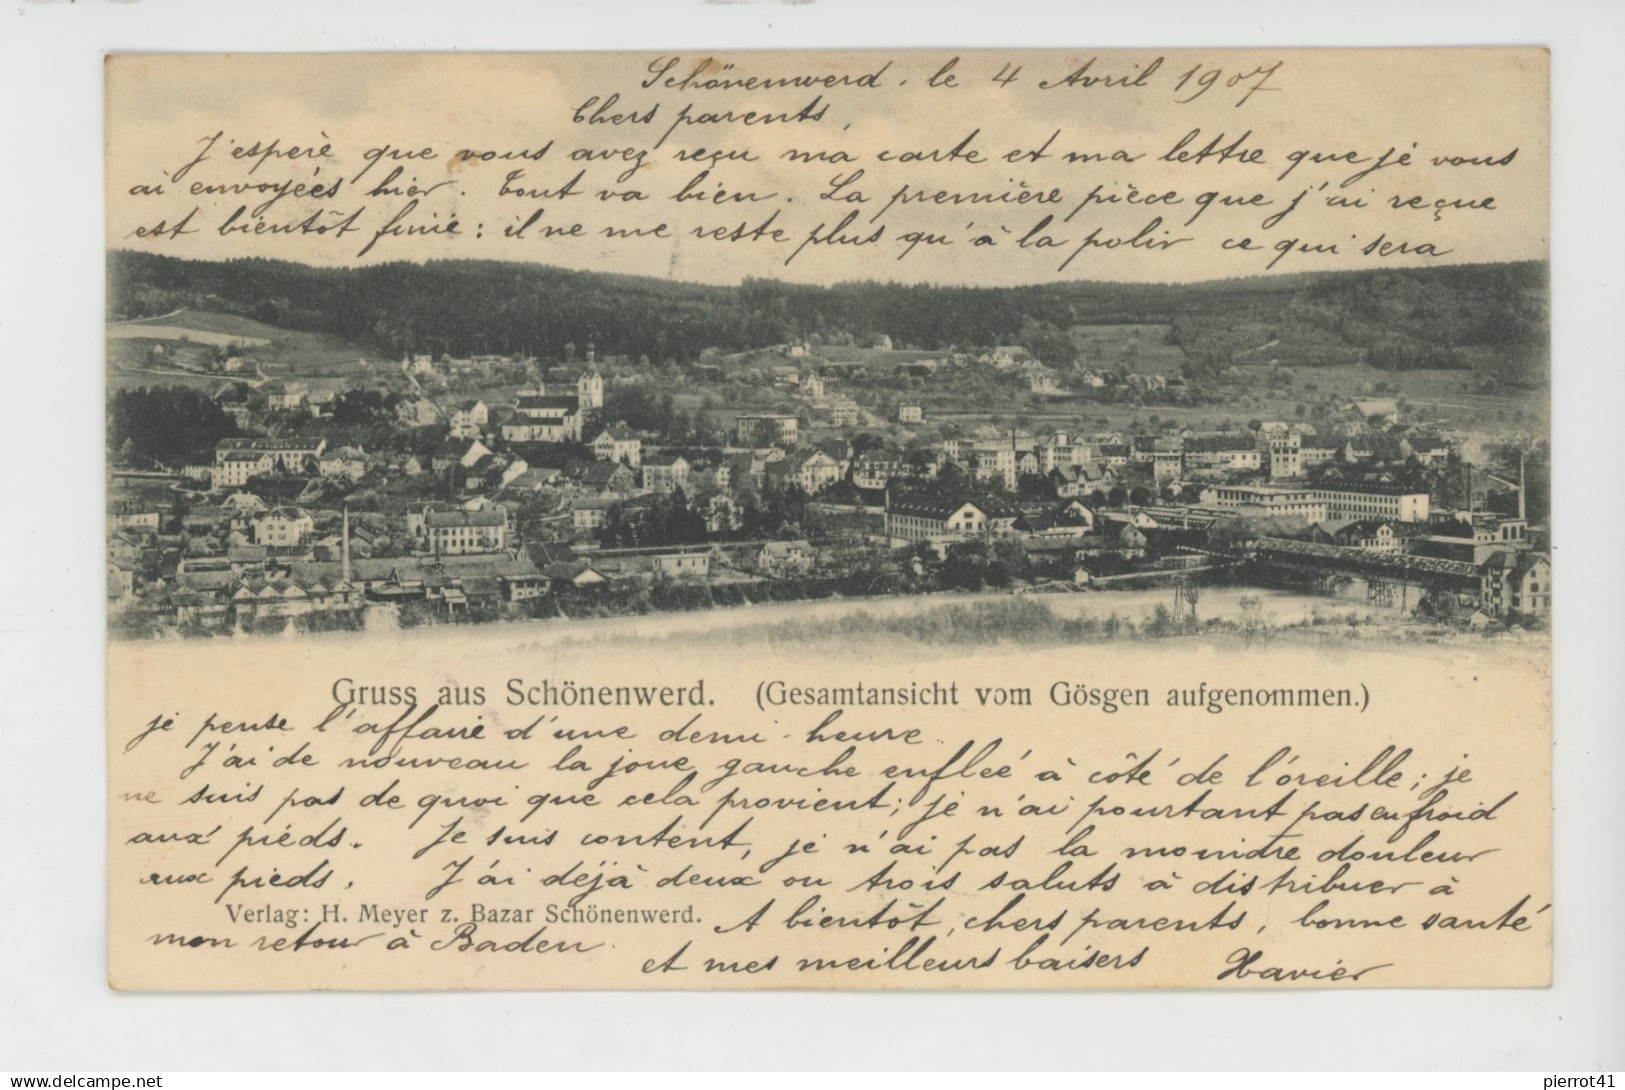 Schönenwerd, le 4 Avril 1907
Chers parents,
J'espère que vous avez reçu ma carte et ma lettre que je vous
ai envoyées hier. Tout va bien. La première pièce que j'ai reçue
est bientôt finie : il ne me reste plus qu'à la polir ce qui sera
Gruss aus Schönenwerd. (Gesamtansicht vom Gösgen aufgenommen.)
je pense l'affaire d'une demi-heure.
J'ai de nouveau la joue gauche enflée à côté de l'oreille; je
ne suis pas de quoi que cela provient; je n'ai pourtant pas eu froid
aux pieds. Je suis content, je n'ai pas la moindre douleur
aux pieds. J'ai déjà deux ou trois saluts à distribuer à
Verlag: H. Meyer z. Bazar Schönenwerd. A bientôt, chers parents, bonne santé
mon retour à Baden.
et mes meilleurs baisers Xavier
delcampe.net
pierrot41